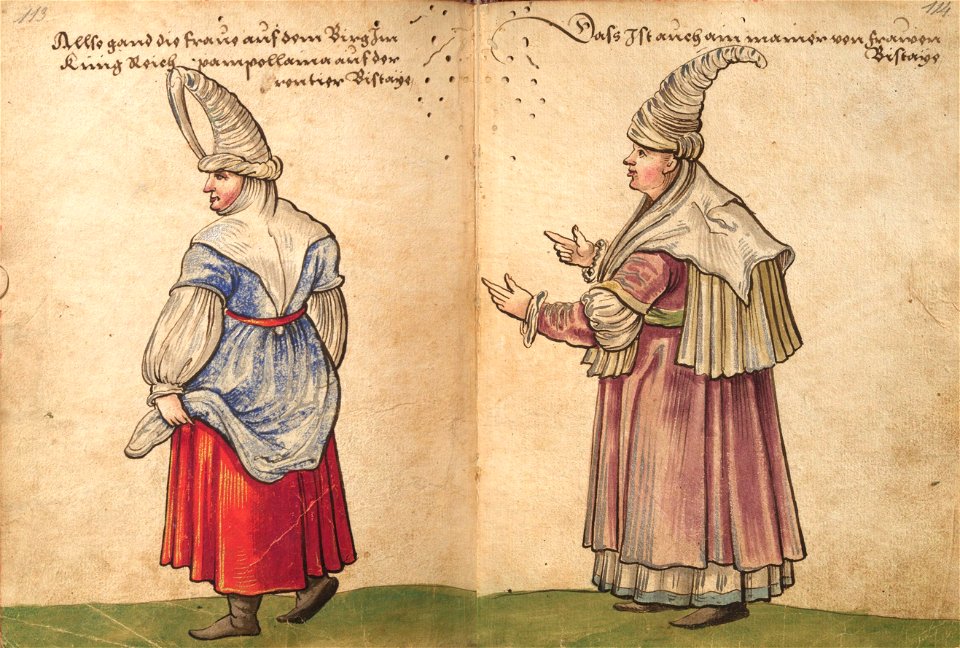 113
Allso gand die fraue auf dem Birg Im
Kunig Reich pampollama auf der
rontier Bistaye
114
Dass Ist auch am manier von frawen
Bistaye